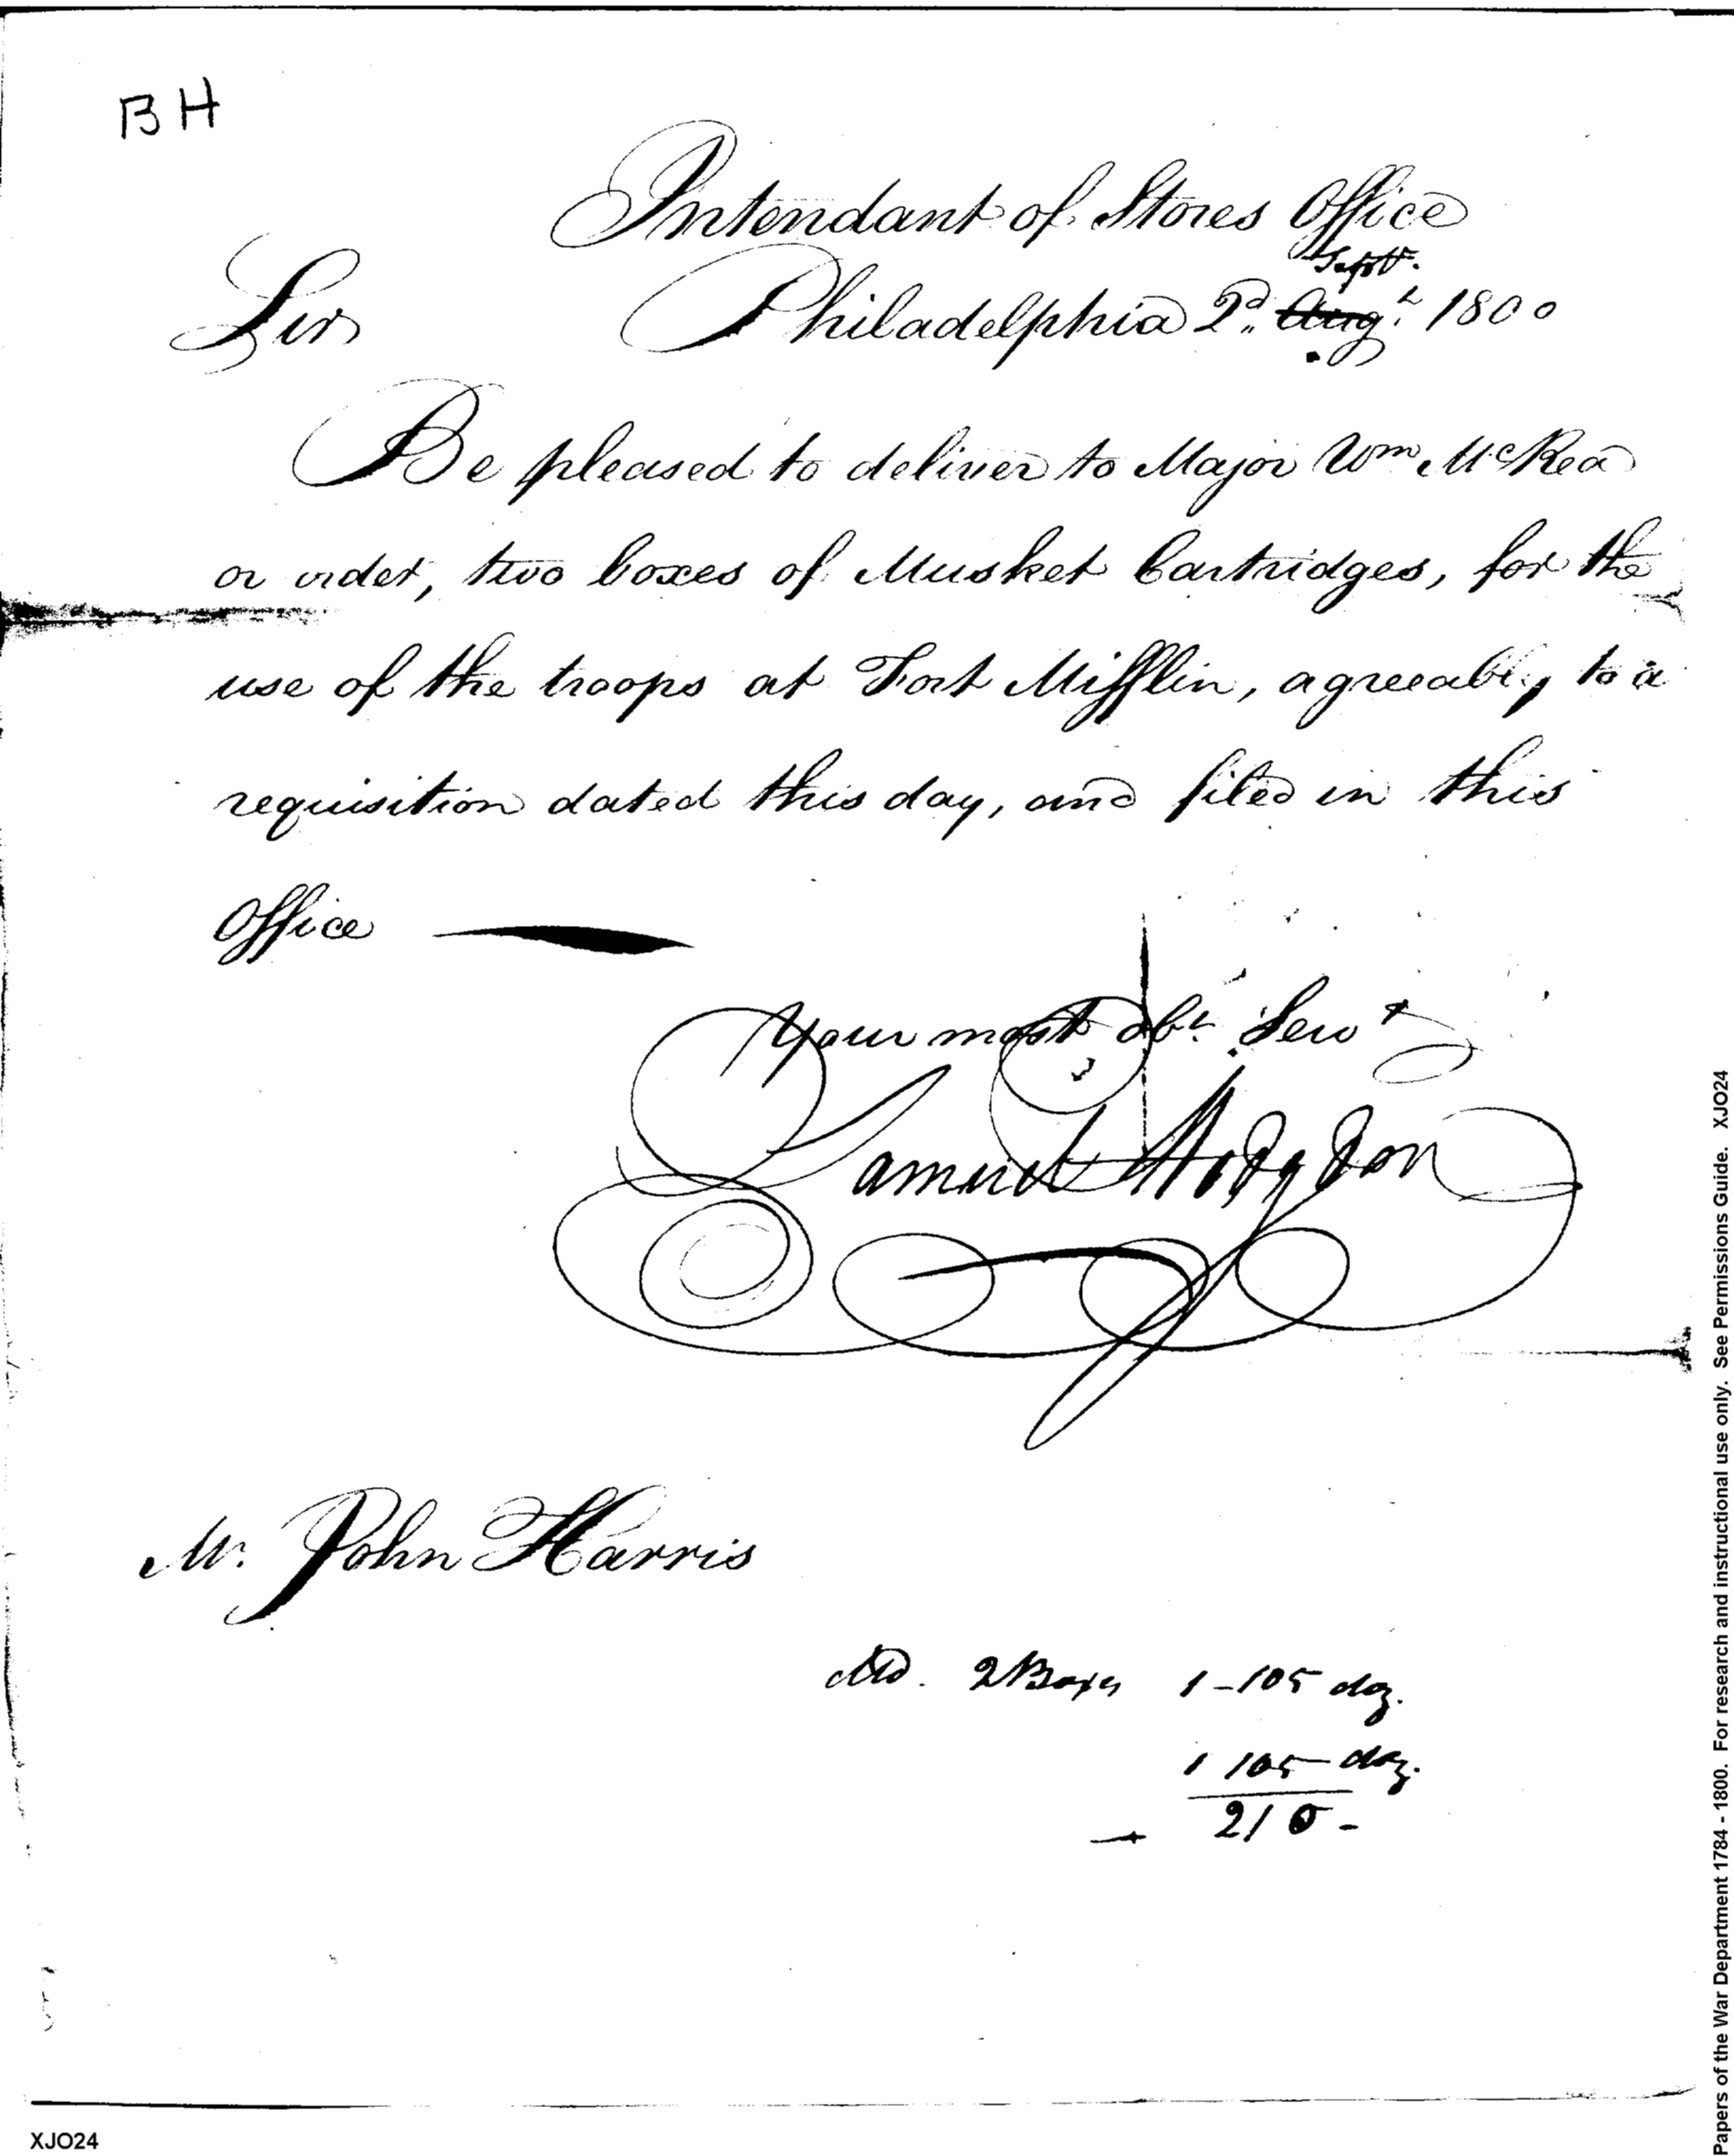 BH
Intendant of Stores Office
Sept.
Sir Philadelphia 2d. Augt. 1800
Be pleased to deliver to Major Wm McRea
or order, two boxes of Musket Cartridges, for the
use of the troops at Fort Mifflin, agreeably to a
requisition dated this day, and filed in this
Office
Your most obt. Servt
Samuel Hodgdon
Mr. John Harris
2 Boxes 1 - 105 doz.
1 105 doz.
210 -
XJO24
Papers of the War Department 1784 - 1800. For research and instructional use only. See Permissions Guide. XJO24